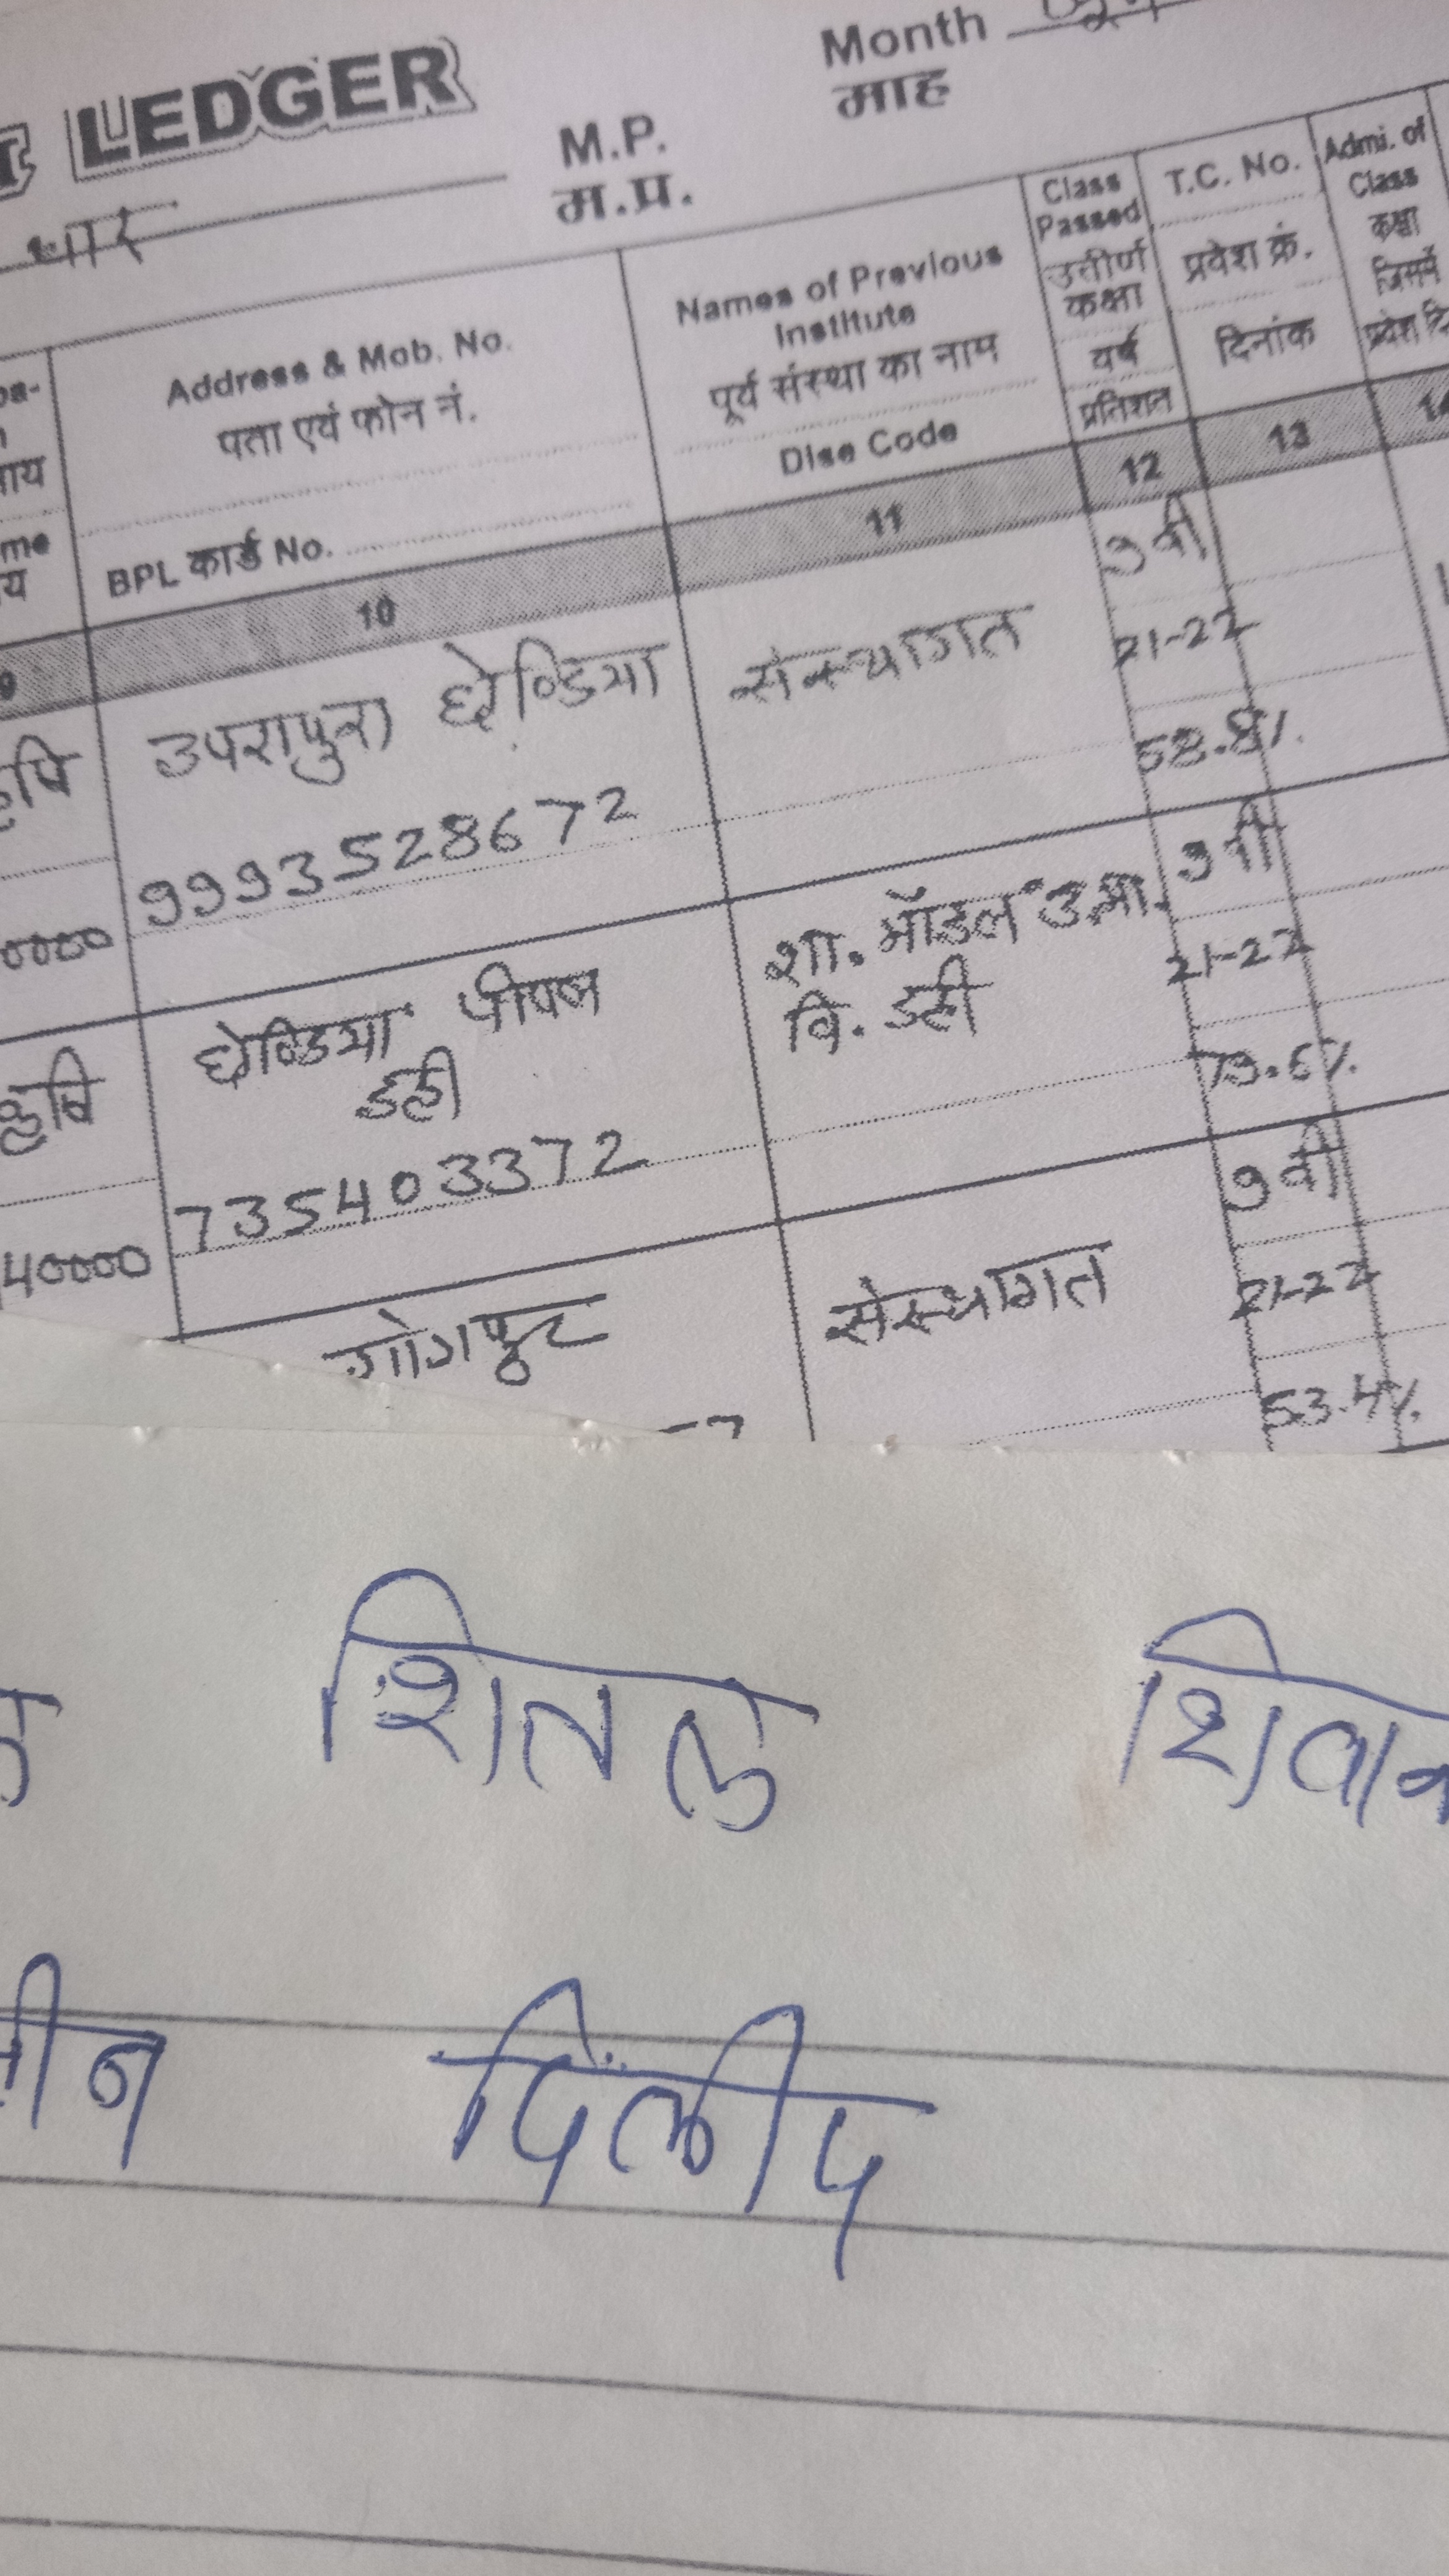 LEDGER
Month
माह
धार
M.P.
म.प्र.
Address & Mob. No.
पता एवं फोन नं.
BPL कार्ड No.
Names of Previous
Institute
पूर्व संस्था का नाम
Dise Code
Class
Passed
उत्तीर्ण
कक्षा
वर्ष
प्रतिशत
T.C. No.
प्रवेश क्रं.
दिनांक
Admi. of
Class
कक्षा
जिसमें
10 11 12 13
संस्थागत
9 वी
21-22
58.8%
9993528672
शा. मॉडल उ.मा.
वि. डही
9 वी
21-22
79.6%
डही
735403372
40000
संस्थागत
9 वी
21-22
53.4%
शितल
दिलीप